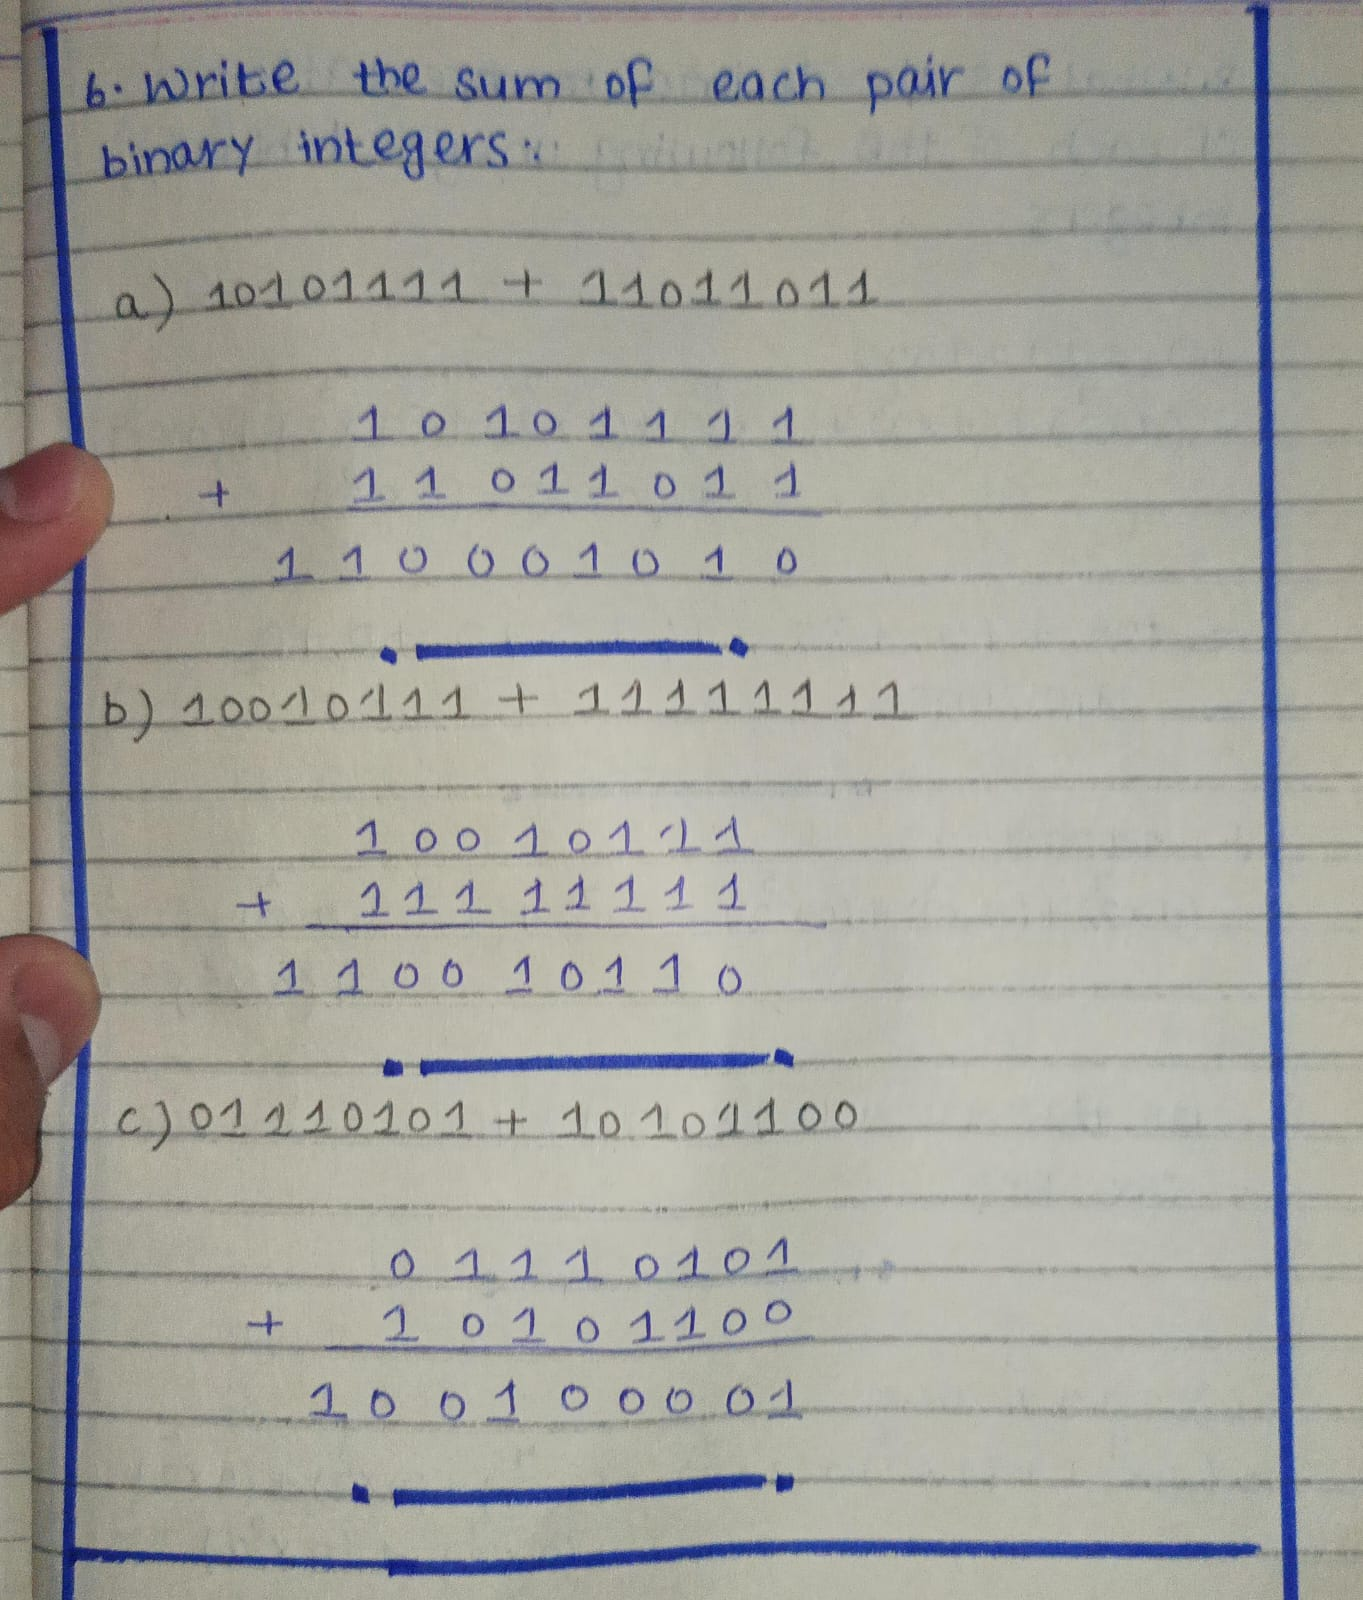 6. Write the sum of each pair of
binary integers:
a) 10101111 + 11011011
1 0 1 0 1 1 1 1
+ 1 1 0 1 1 0 1 1
1 1 0 0 0 1 0 1 0
b) 10010111 + 11111111
1 0 0 1 0 1 1 1
+ 1 1 1 1 1 1 1 1
1 1 0 0 1 0 1 1 0
c) 01110101 + 10101100
0 1 1 1 0 1 0 1
+ 1 0 1 0 1 1 0 0
1 0 0 1 0 0 0 0 1